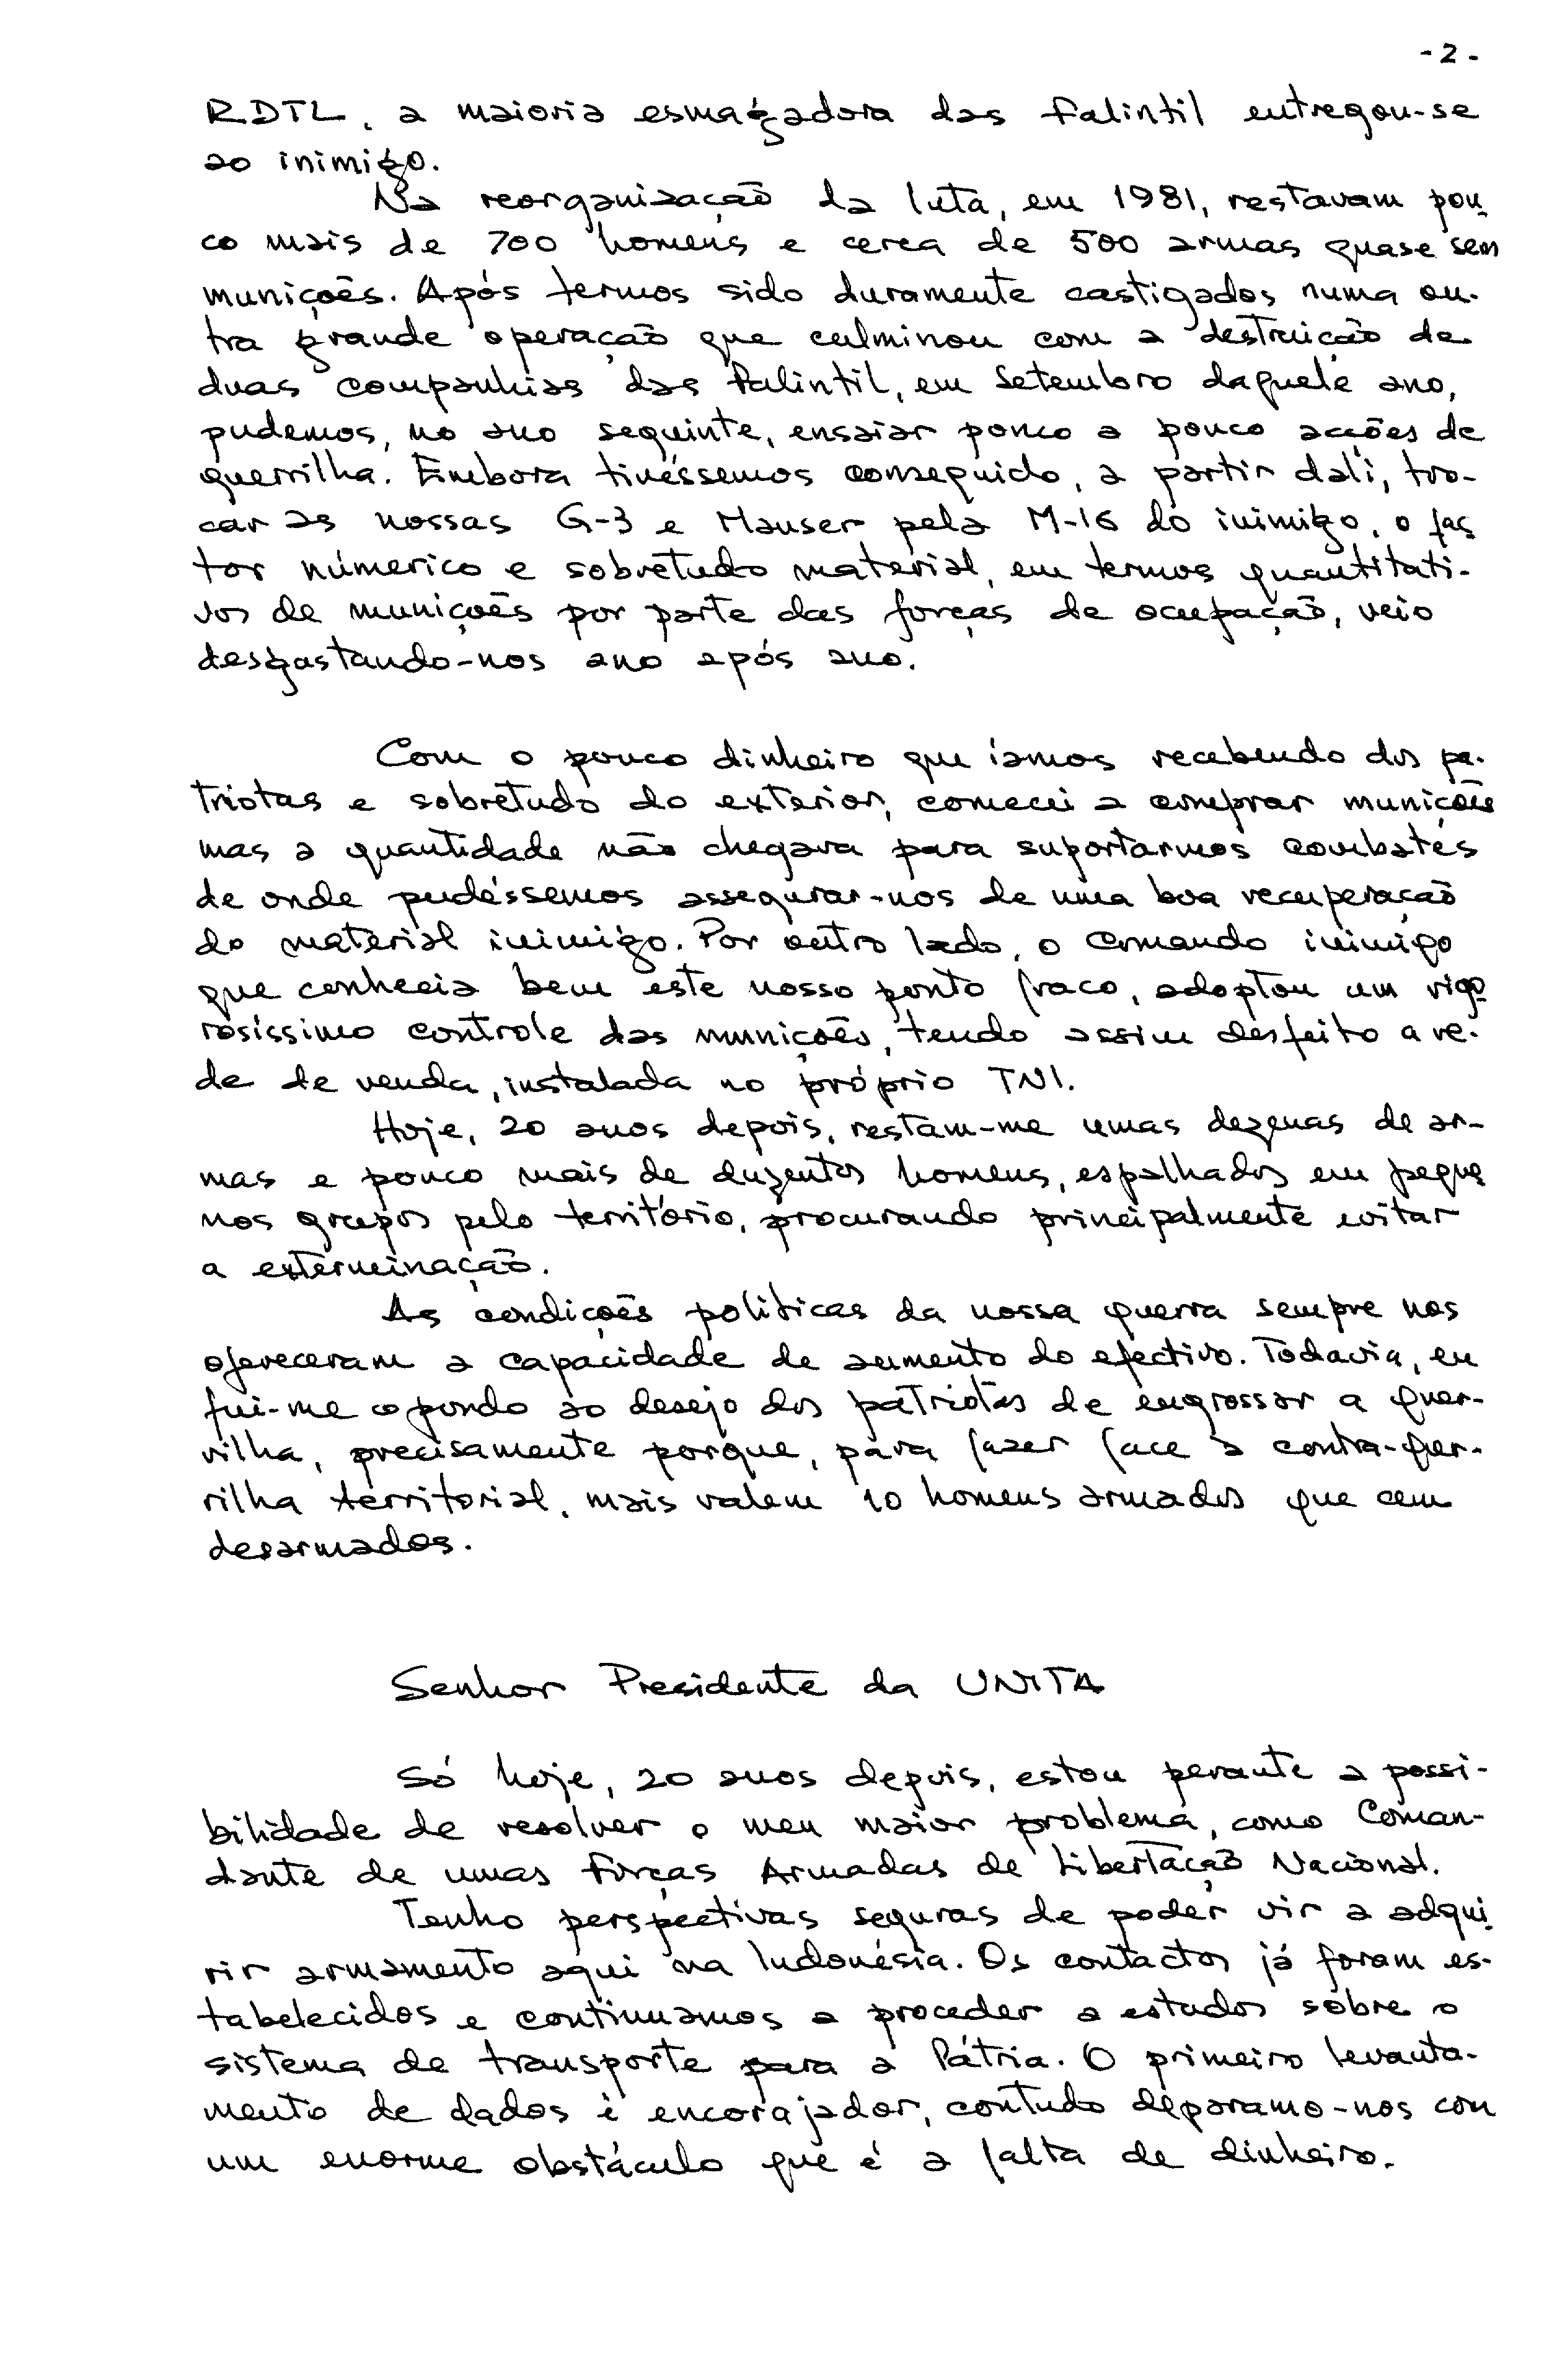 - 2 -
RDTL, a maioria esmagadora das Falintil entregou-se
ao inimigo.
Na reorganização da luta, em 1981, restavam pou
co mais de 700 homens e cerca de 500 armas quase sem
munições. Após termos sido duramente castigados numa ou-
tra grande operação que culminou com a destruição de
duas companhias das Falintil, em Setembro daquele ano,
pudemos, no ano seguinte, ensaiar pouco a pouco acções de
guerrilha. Embora tivéssemos conseguido, a partir dali, tro-
car as nossas G-3 e Mauser pela M-16 do inimigo, o fac
tor númerico e sobretudo material, em termos quantitati-
vos de munições por parte das forças de ocupação, veio
desgastando-nos ano após ano.
Com o pouco dinheiro que íamos recebendo dos pa-
triotas e sobretudo do exterior, comecei a comprar munições
mas a quantidade não chegava para suportarmos combates
de onde pudéssemos assegurar-nos de uma boa recuperação
do material inimigo. Por outro lado, o comando inimigo
que conhecia bem este nosso ponto fraco, adoptou um vigo
rosíssimo controle das munições, tendo assim desfeito a re-
de de venda, instalada no próprio TNI.
Hoje, 20 anos depois, restam-me umas dezenas de ar-
mas e pouco mais de duzentos homens, espalhados em peque
nos grupos pelo território, procurando principalmente evitar
a exterminação.
As condições políticas da nossa guerra sempre nos
ofereceram a capacidade de aumento do efectivo. Todavia, eu
fui-me opondo ao desejo dos patriotas de engrossar a guer-
rilha, precisamente porque, para fazer face à contra-guer-
rilha territorial, mais valem 10 homens armados que cem
desarmados.
Senhor Presidente da UNITA
Só hoje, 20 anos depois, estou perante a possi-
bilidade de resolver o meu maior problema, como Coman-
dante de umas Forças Armadas de Libertação Nacional.
Tenho perspectivas seguras de poder vir a adqui
rir armamento aqui na Indonésia. Os contactos já foram es-
tabelecidos e continuamos a proceder a estudos sobre o
sistema de transporte para a Pátria. O primeiro levanta-
mento de dados é encorajador, contudo deparamo-nos com
um enorme obstáculo que é a falta de dinheiro.